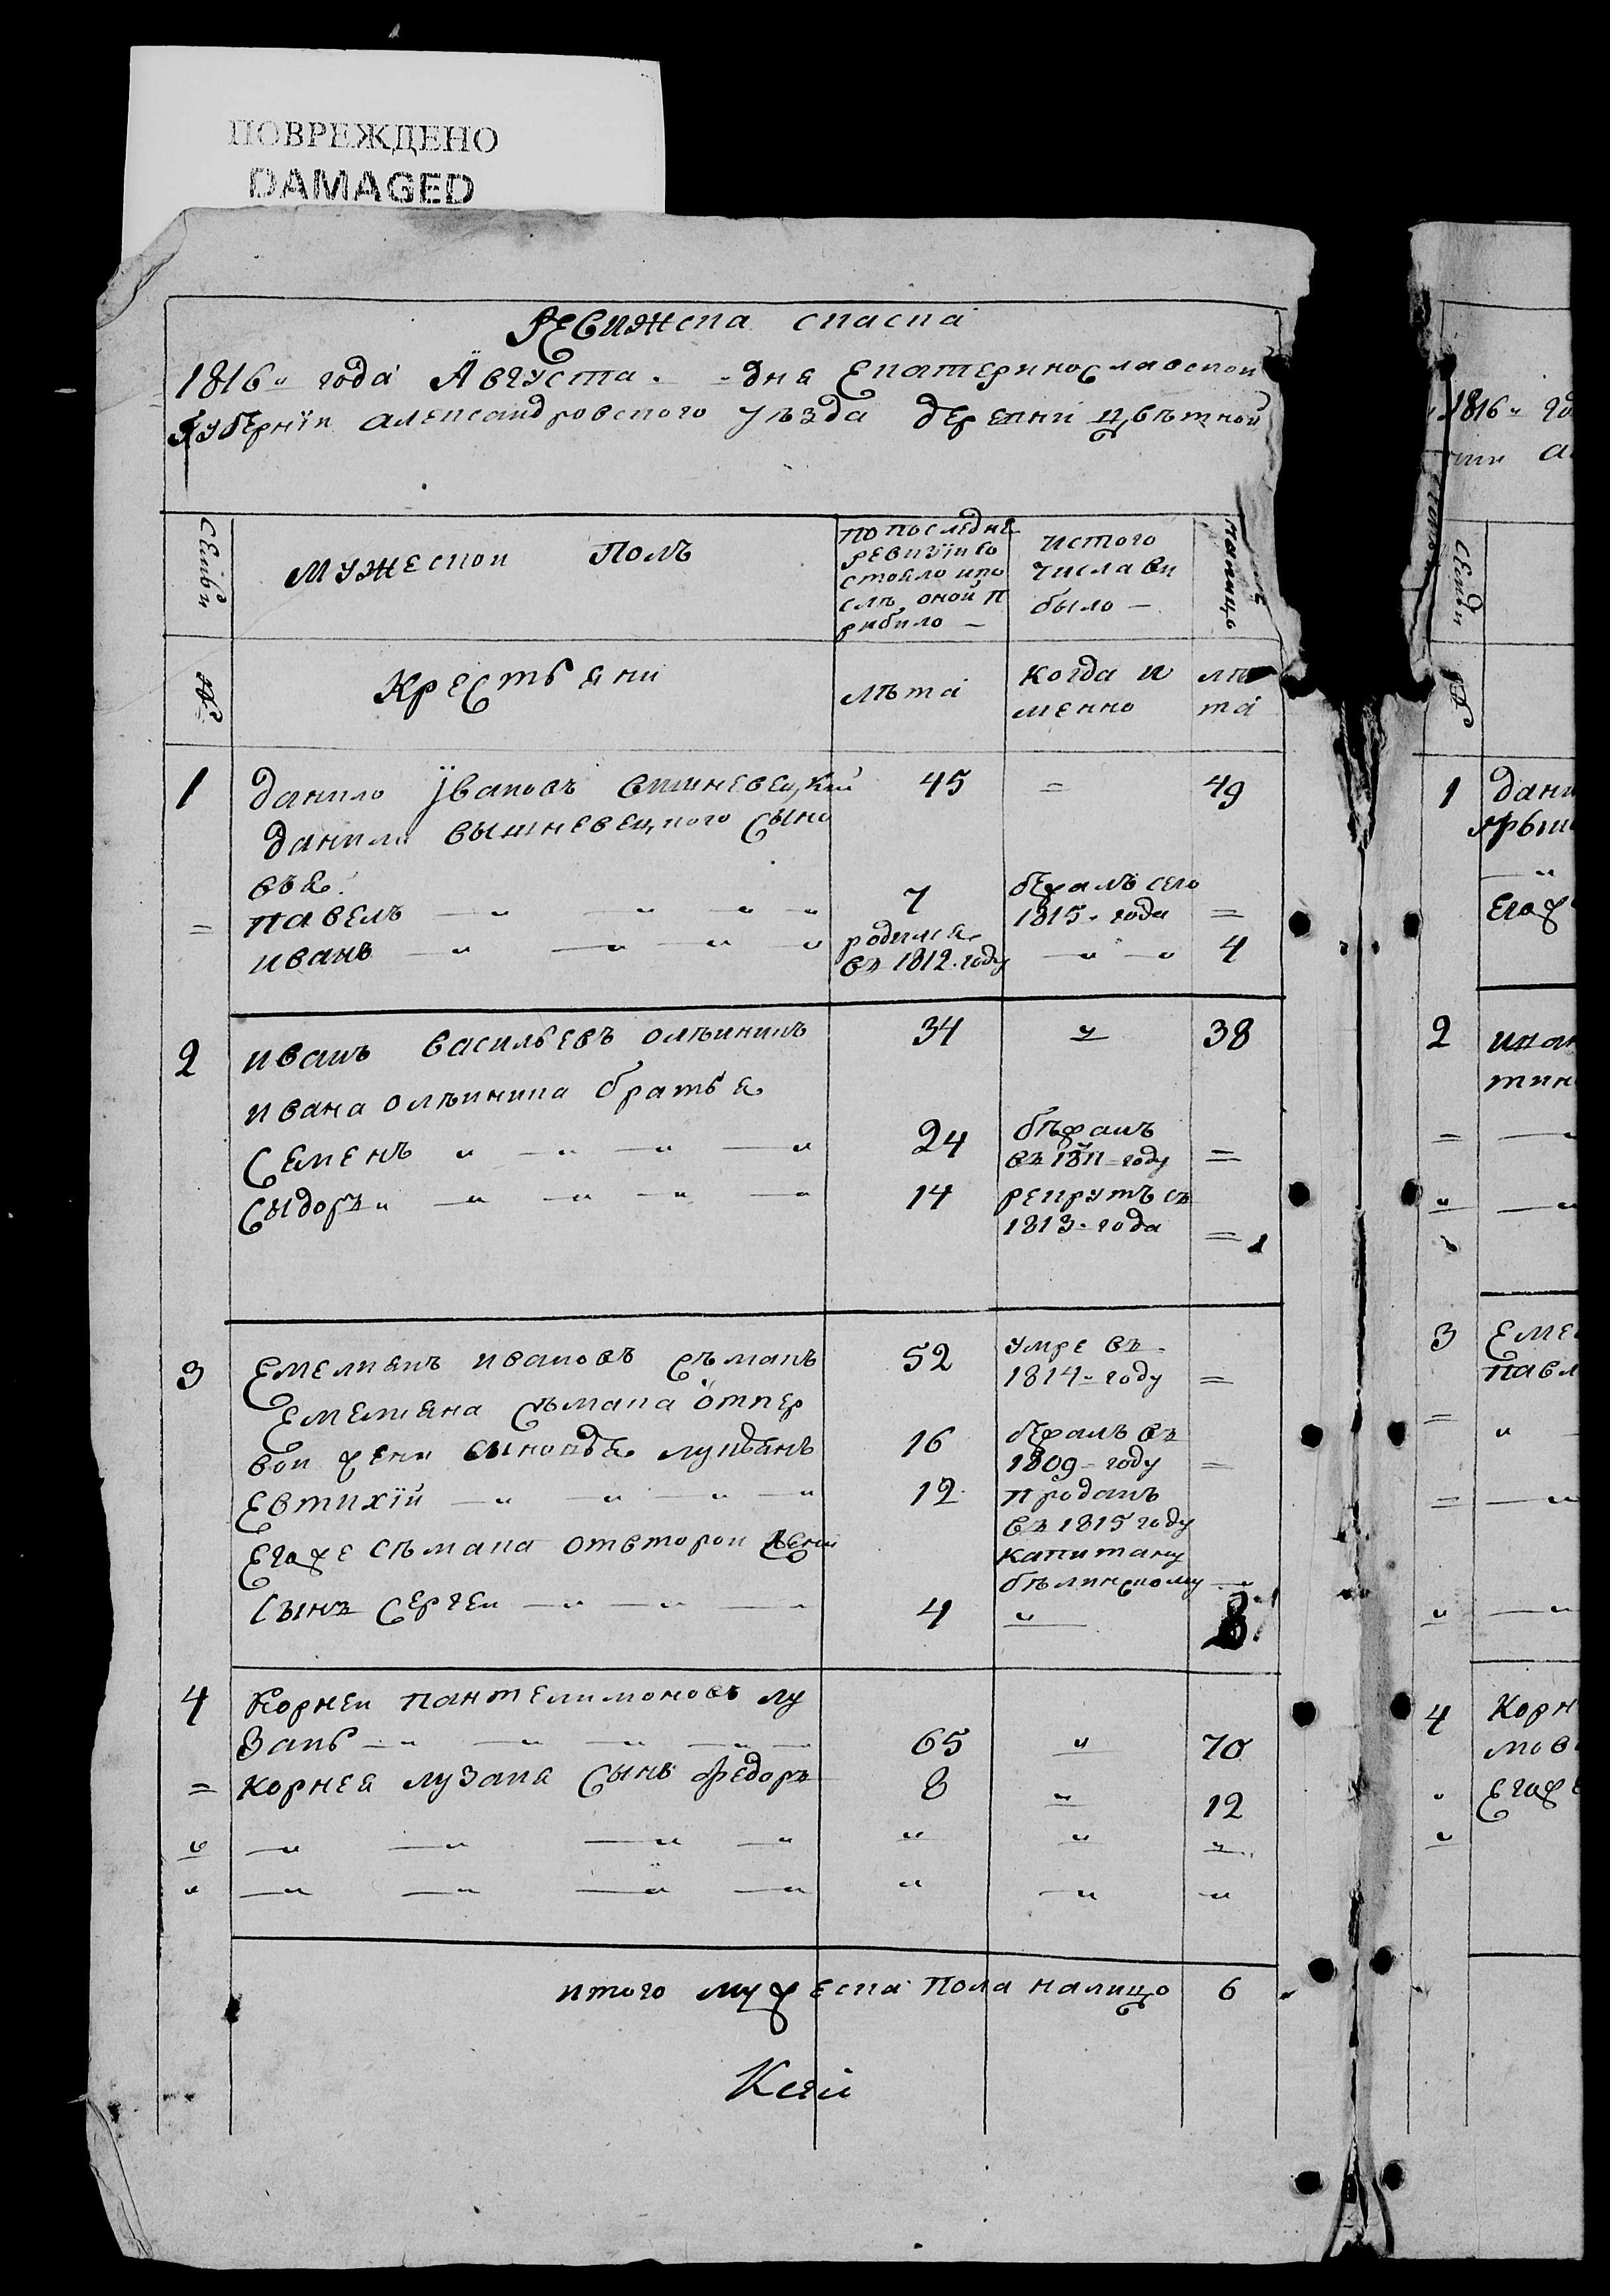 ПОВРЕЖДЕНО
DAMAGED
Ревижска спаска
1816 года Августа дня Екатеринославской
Губернїи Александровского уъзда деревни цвѣтной
Семьи
Мужескои Полъ
по последне
ревизїи со
стояло ипо
слѣ оной п
рибило —
истого
числа ви
было —
налицо
№
Крестьяни
лѣта
когда и
менно
лѣ
та
1 данило Ївановъ вишневецкий 45 = 49
данила вышневецкого сыно
вья
= павелъ — " — " — " — " 7 бежалъ сего
1815 года =
иванъ — " — " — " — " родился
въ 1812 году — " — " 4
2 иванъ васильевъ олѣиникъ 34 " 38
ивана олѣиника братья
Семенъ " — " — " — " 24 бѣжалъ
въ 1811 году =
Сыдоръ " — " — " — " — " 14 рекрутъ съ
1813 года =
3 Емелиянъ ивановъ съмакъ 52 умре въ
1814 году =
Емелияна съмака отпер
вои жени сыновья лукиянъ 16 бежалъ въ
1809 году =
Евтихїй — " — " — " — " 12 проданъ
въ 1815 году
капитану
бѣлинскому —
Егоже съмака отвторои жени
сынъ сергеи — " — " — " 4 " 8
4 Корнеи пантелимоновъ лу
зань — " — " — " — " 65 " 70
= корнея лузаня сынъ федоръ 8 " 12
" — " — " — " — " " " "
" — " — " — " — " " — " — "
итого мужеска пола налицо 6
1816 го
Семьи
№
1 дани
2
3 Еме
павл
4 Корн
Егоже